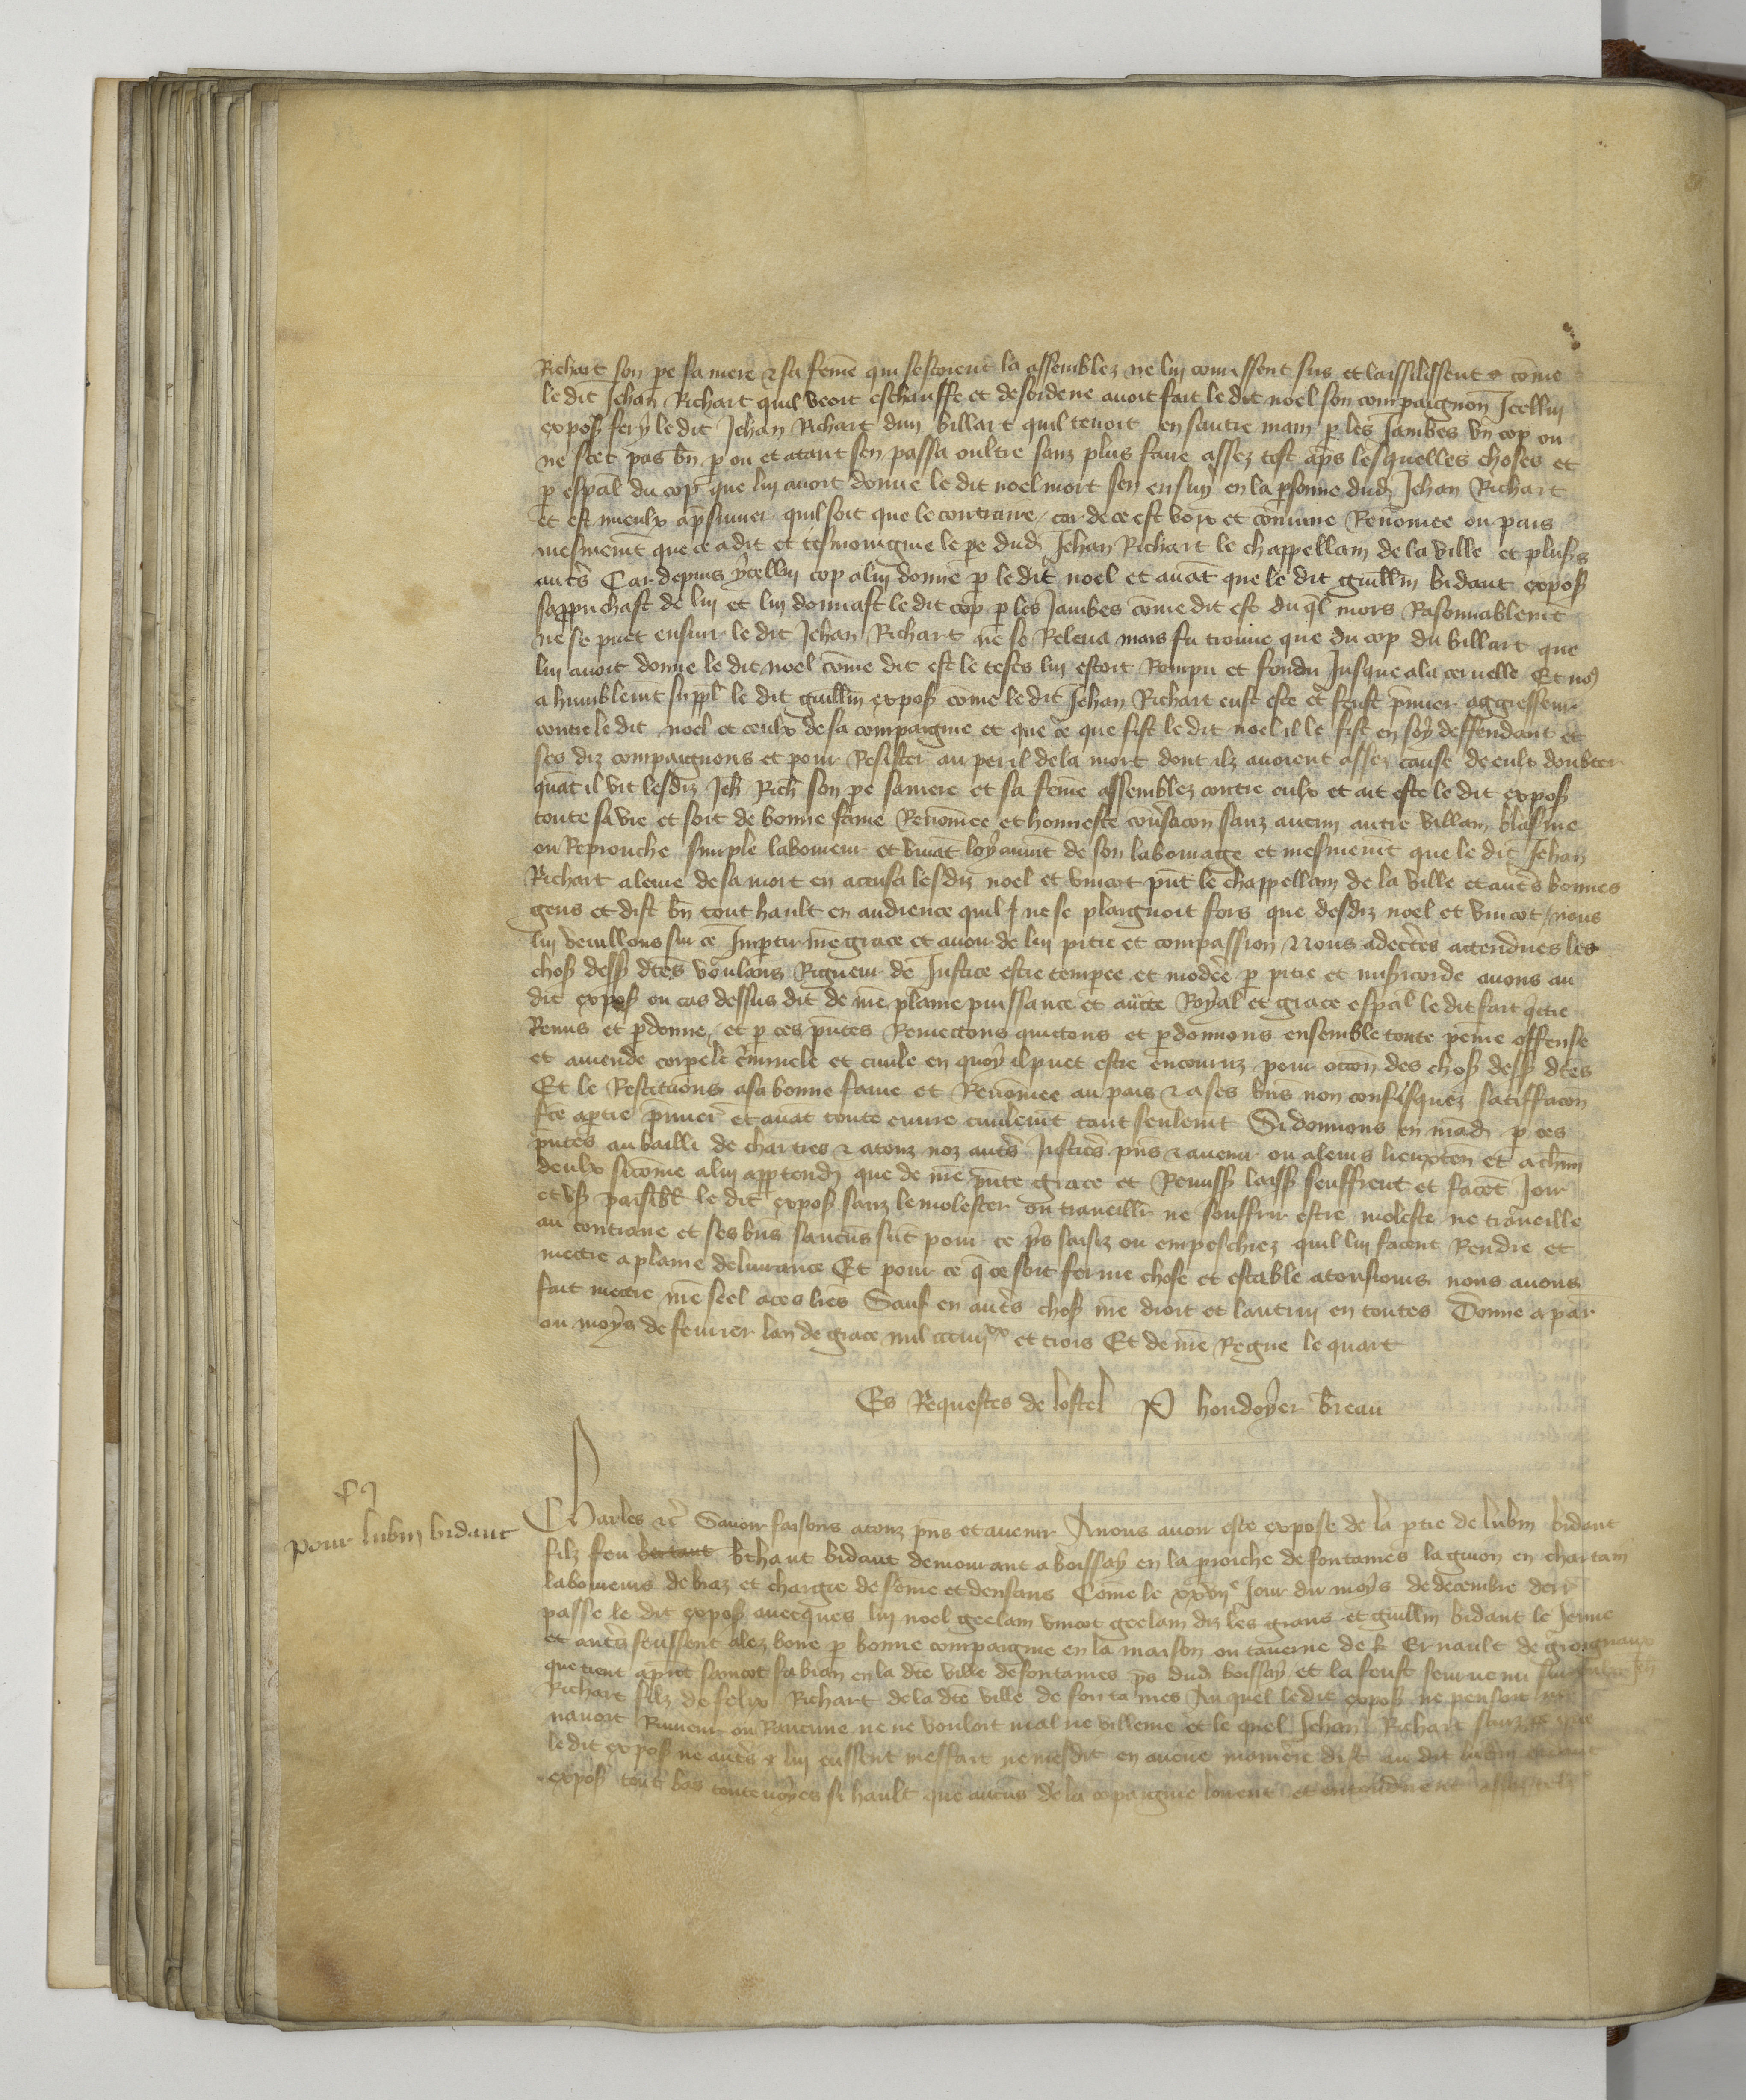 Richart son pe sa mere & sa feme qui sestoient la assemblez ne lui courissent sus et laissilissent & come
le dit Jehan Richart quil veoit eschauffe et desordene avoit fait le dit noel son compaignon Icellui
expos fery le dit Jehan Richart dun billart quil tenoit en sautre main p les Jambes un cop ou
ne scet pas bn p ou et atant sen passa oultre sanz plus faire assez tost aps lesquelles choses et
p espal du cop que lui avoit donne le dit noel mort sen ensuy en la psonne dud Jehan Richart
et est mieulx apsumer quil soit que le contraire / car de ce est voix et comune Renomee ou pais
mesmemt que ce a dit et tesmoingne le pe dud Jehan Richart le chappellain de la ville et plus
auts Car depuis ycellui cop a lui donne p le dit noel et avat que le dit guillm bidaut expos
sapprichast de lui et lui donnast le dit cop p les Jambes come dit est du ql mors Rasonnablemt
ne se puet ensuir le dit Jehan Richart ne se Releva mais fu trouve que du cop du billart que
lui avoit donne le dit noel come dit est le teste lui estoit Rompu et fondu Jusque a la cervelle Et no
a humblemt suppl le dit guillm expos come le dit Jehan Richart eust este et feust pmier aggresseur
contre le dit noel et ceulx de sa compaignie et que ce que fist le dit noel il le fist en soy deffendant et
ses diz compaignons et pour Resister au peril de la mort dont ilz avoient assez cause de eulx doubter
quat il vit lesdiz Jeh Rich son pe sa mere et sa feme assemblez contre eulx et ait este le dit expos
toute sa vie et soit de bonne fame Renomee et honneste covsacon sanz aucun autre villain blasme
ou Reprouche simple laboureur et vivat loyaumt de son labourage et mesmemt que le dit Jehan
Richart a leure de sa mort en accusa lesdiz noel et vincot pnt le chappellain de la ville et auts bonnes
gens et dist bn tout hault en audience quil ne se plaignoit fors que desdiz noel et vincot / nous
lui veuillons sur ce Impartir nre grace et avoir de lui pitie et compassion Nous adectes attendues les
chos dess dtes voulans Rigueur de Justice estre tempee et modee p pitie et misicorde avons au
dit expos ou cas dessus dit de nre plaine puissance et aucte Royal et grace espal le dit fait qctie
Remis et pdonne / et p ces pntes Remectons quictons et pdonnons ensemble toute peine offense
et amende corpele cminele et civile en quoy il puet estre encouruz pour occon des chos dess dtes
Et le Restituons a sa bonne fame et Renomee au pais & a ses bns non confisquez satiffacon
fce a ptie pmier et avat toute euvre civilemt tant seulemt Si donnons en mad p ces
pntes au bailli de chartres & a touz noz auts Justics pns & avenir ou a leurs lieuxten et a chun
deulx si come a lui apptendr que de nre pnte grace et Remiss laiss seuffrent et facet Joir
et us paisibl le dit expos sanz le molester ou traveillr ne souffrir estre moleste ne traveille
au contraire et ses bns saucuns sut pour ce ps saisiz ou empeschiez quil lui facent Rendre et
mectre a plaine delivrance Et pour ce q ce soit ferme chose et estable a tousiours nous avons
fait mectre nre seel a ces lres Sauf en auts chos nre droit et lautrui en toutes Donne a par
ou moys de fevrier lan de grace mil ccciiiixx et trois Et de nre Regne le quart
Es Requestes de lostel P hondoyer breau
Pour lubin bidaut
Charles etc Savoir faisons a touz pns et avenir A nous avoir este expose de la ptie de lubin bidaut
filz feu bthaut bidaut demourant a boissay en la proiche de fontaines la guion en chartain
laboureur de braz et chargie de feme et denfans Come le xxviie Jour du moys de decembre derr
passe le dit expos avecques lui noel geelain vincot geelain diz les grans et guillm bidaut le Jeune
et auts feussent alez boire p bonne compaignie en la maison ou taverne de Ernault de groignaux
que tient apnt samcot fabian en la dte ville de fontaines ps dud boissay et la feust seurvenu
Richart filz de felix Richart de la dte ville de fontaines Au quel le dit expos ne pensoit
navoit Rumeur ou Rancune ne ne vouloit mal ne villenie et le quel Jehan Richart sanz ce que
le dit expos ne auts de lui eussent meffait ne mesdit en aucune maniere dist au dit lubin bidaut
expos tout bas toutevoyes si hault que aucus de la copaignie loirent et entendirent